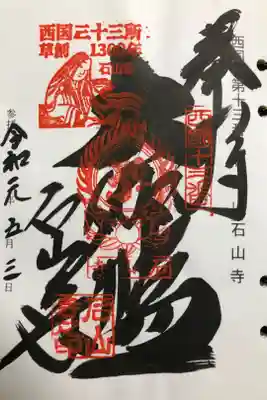 西国第十三
石山寺
奉拝
西国十三番
西国三十三所
草創1300年
石山寺
大伽藍
石山寺
石山寺印
令和元年五月三日